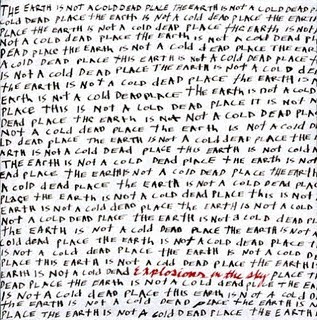 THE EARTH IS NOT A COLD DEAD PLACE THE EARTH IS NOT A COLD DEAD
COLD DEAD PLACE THE EARTH IS NOT A COLD DEAD PLACE THE EARTH
PLACE THE EARTH IS NOT A COLD DEAD PLACE THE EARTH IS NOT
NOT A COLD DEAD PLACE THE EARTH IS NOT A COLD DEAD
DEAD PLACE THE EARTH IS NOT A COLD DEAD PLACE THE
A COLD DEAD PLACE THIS EARTH IS NOT A COLD DEAD PLACE
IS NOT A COLD DEAD PLACE THE EARTH IS NOT A COLD
THE EARTH IS NOT A COLD DEAD PLACE THE EARTH IS
EARTH IS NOT A COLD DEAD PLACE THE EARTH IS NOT A COLD
PLACE THIS IS NOT A COLD DEAD PLACE IT IS NOT A
DEAD PLACE THE EARTH IS NOT A COLD DEAD PLACE
NOT A COLD DEAD PLACE THE EARTH IS NOT A COLD
COLD DEAD PLACE THE EARTH IS NOT A COLD DEAD PLACE THE
EARTH IS NOT A COLD DEAD PLACE THIS EARTH IS NOT COLD
THE EARTH IS NOT A COLD DEAD PLACE THE EARTH IS NOT A
DEAD PLACE THE EARTH IS NOT A COLD DEAD PLACE THE EARTH
A COLD DEAD PLACE THE EARTH IS NOT A COLD DEAD PLACE
PLACE THE EARTH IS NOT A COLD DEAD PLACE THIS IS NOT
COLD DEAD PLACE THE EARTH IS NOT A COLD DEAD
NOT A COLD DEAD PLACE THE EARTH IS NOT A COLD DEAD
THE EARTH IS NOT A COLD DEAD PLACE THE EARTH IS NOT
COLD DEAD PLACE THE EARTH IS NOT A COLD DEAD PLACE
IS NOT A COLD DEAD PLACE THE EARTH IS NOT A COLD
PLACE THIS EARTH IS NOT A COLD DEAD PLACE THE EARTH
EARTH IS NOT A COLD DEAD Explosions in the sky PLACE THE
DEAD PLACE THE EARTH IS NOT A COLD DEAD PLACE THE EARTH
IS NOT A COLD DEAD PLACE THIS EARTH IS NOT A COLD
THE EARTH IS NOT A COLD DEAD PLACE THE EARTH IS
PLACE THE EARTH IS NOT A COLD DEAD PLACE THE EARTH